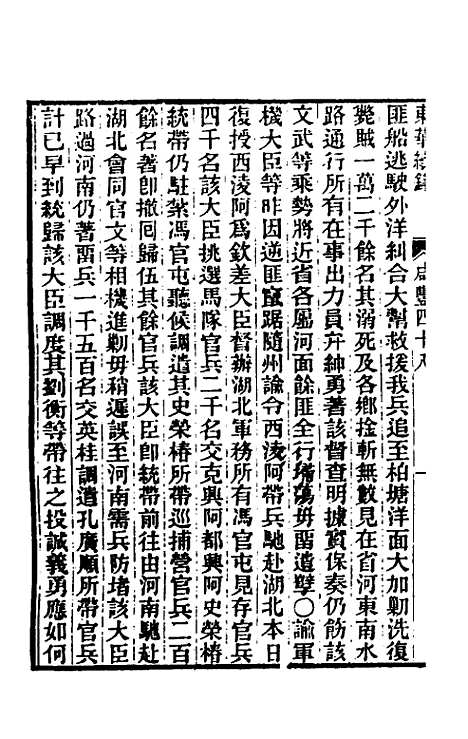 東華續錄　咸豐四十八　一
匪船逃駛外洋糾合大幫救援我兵追至柏塘洋面大加剿洗復
斃賊一萬二千餘名其溺死及各鄉捦斬無數見在省河東南水
路通行所有在事出力員弁紳勇著該督查明據實保奏仍飭該
文武等乘勢將近省各屬河面餘匪全行掃蕩毋畱遺孽〇諭軍
機大臣等昨因逆匪竄踞隨州諭令西淩阿帶兵馳赴湖北本日
復授西淩阿爲欽差大臣督辦湖北軍務所有馮官屯見存官兵
四千名該大臣挑選馬隊官兵二千名交克興阿都興阿史榮椿
統帶仍駐紮馮官屯聽候調遣其史榮椿所帶巡捕營官兵二百
餘名著卽撤囘歸伍其餘官兵該大臣卽統帶前往由河南馳赴
湖北會同官文等相機進剿毋稍遲誤至河南需兵防堵該大臣
路過河南仍著畱兵一千五百名交英桂調遣孔廣順所帶官兵
計已早到統歸該大臣調度其劉衡等帶往之投誠義勇應如何